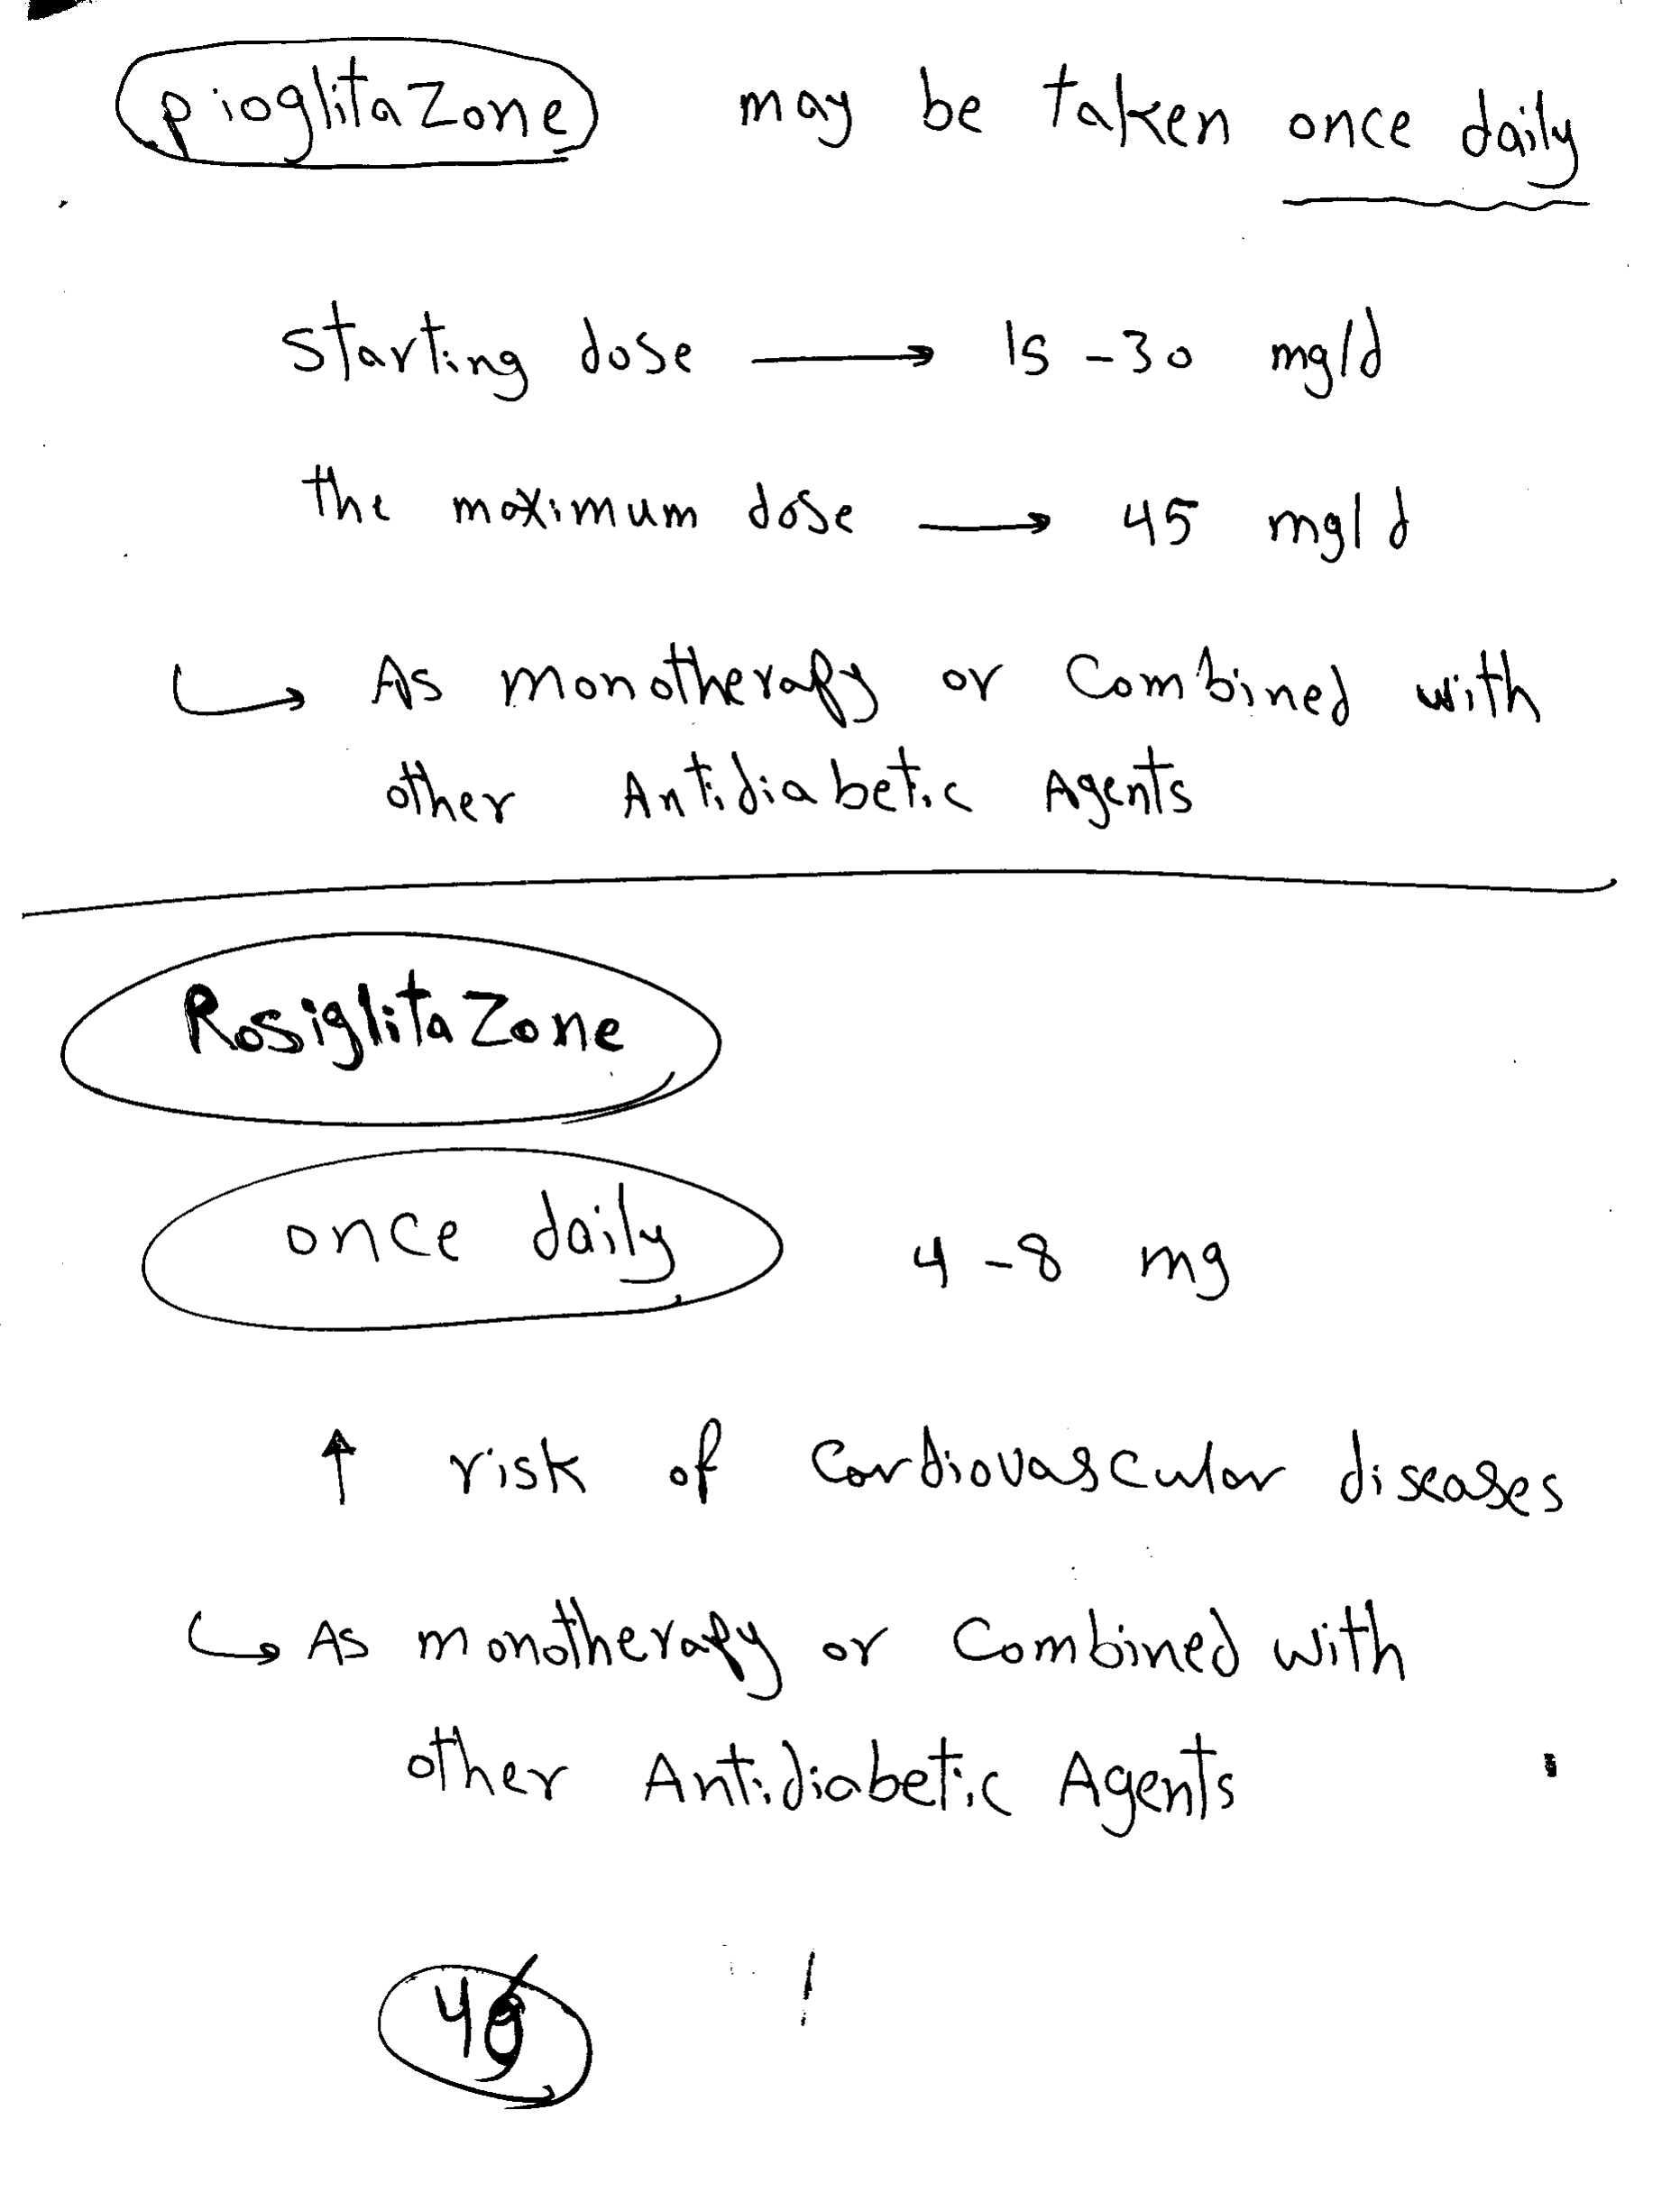 pioglitazone may be taken once daily
starting dose → 15 - 30 mg/d
the maximum dose → 45 mg/d
↳ As monotherapy or Combined with
other Antidiabetic Agents
Rosiglitazone
once daily 4 - 8 mg
↑ risk of Cardiovascular diseases
↳ As monotherapy or Combined with
other Antidiabetic Agents